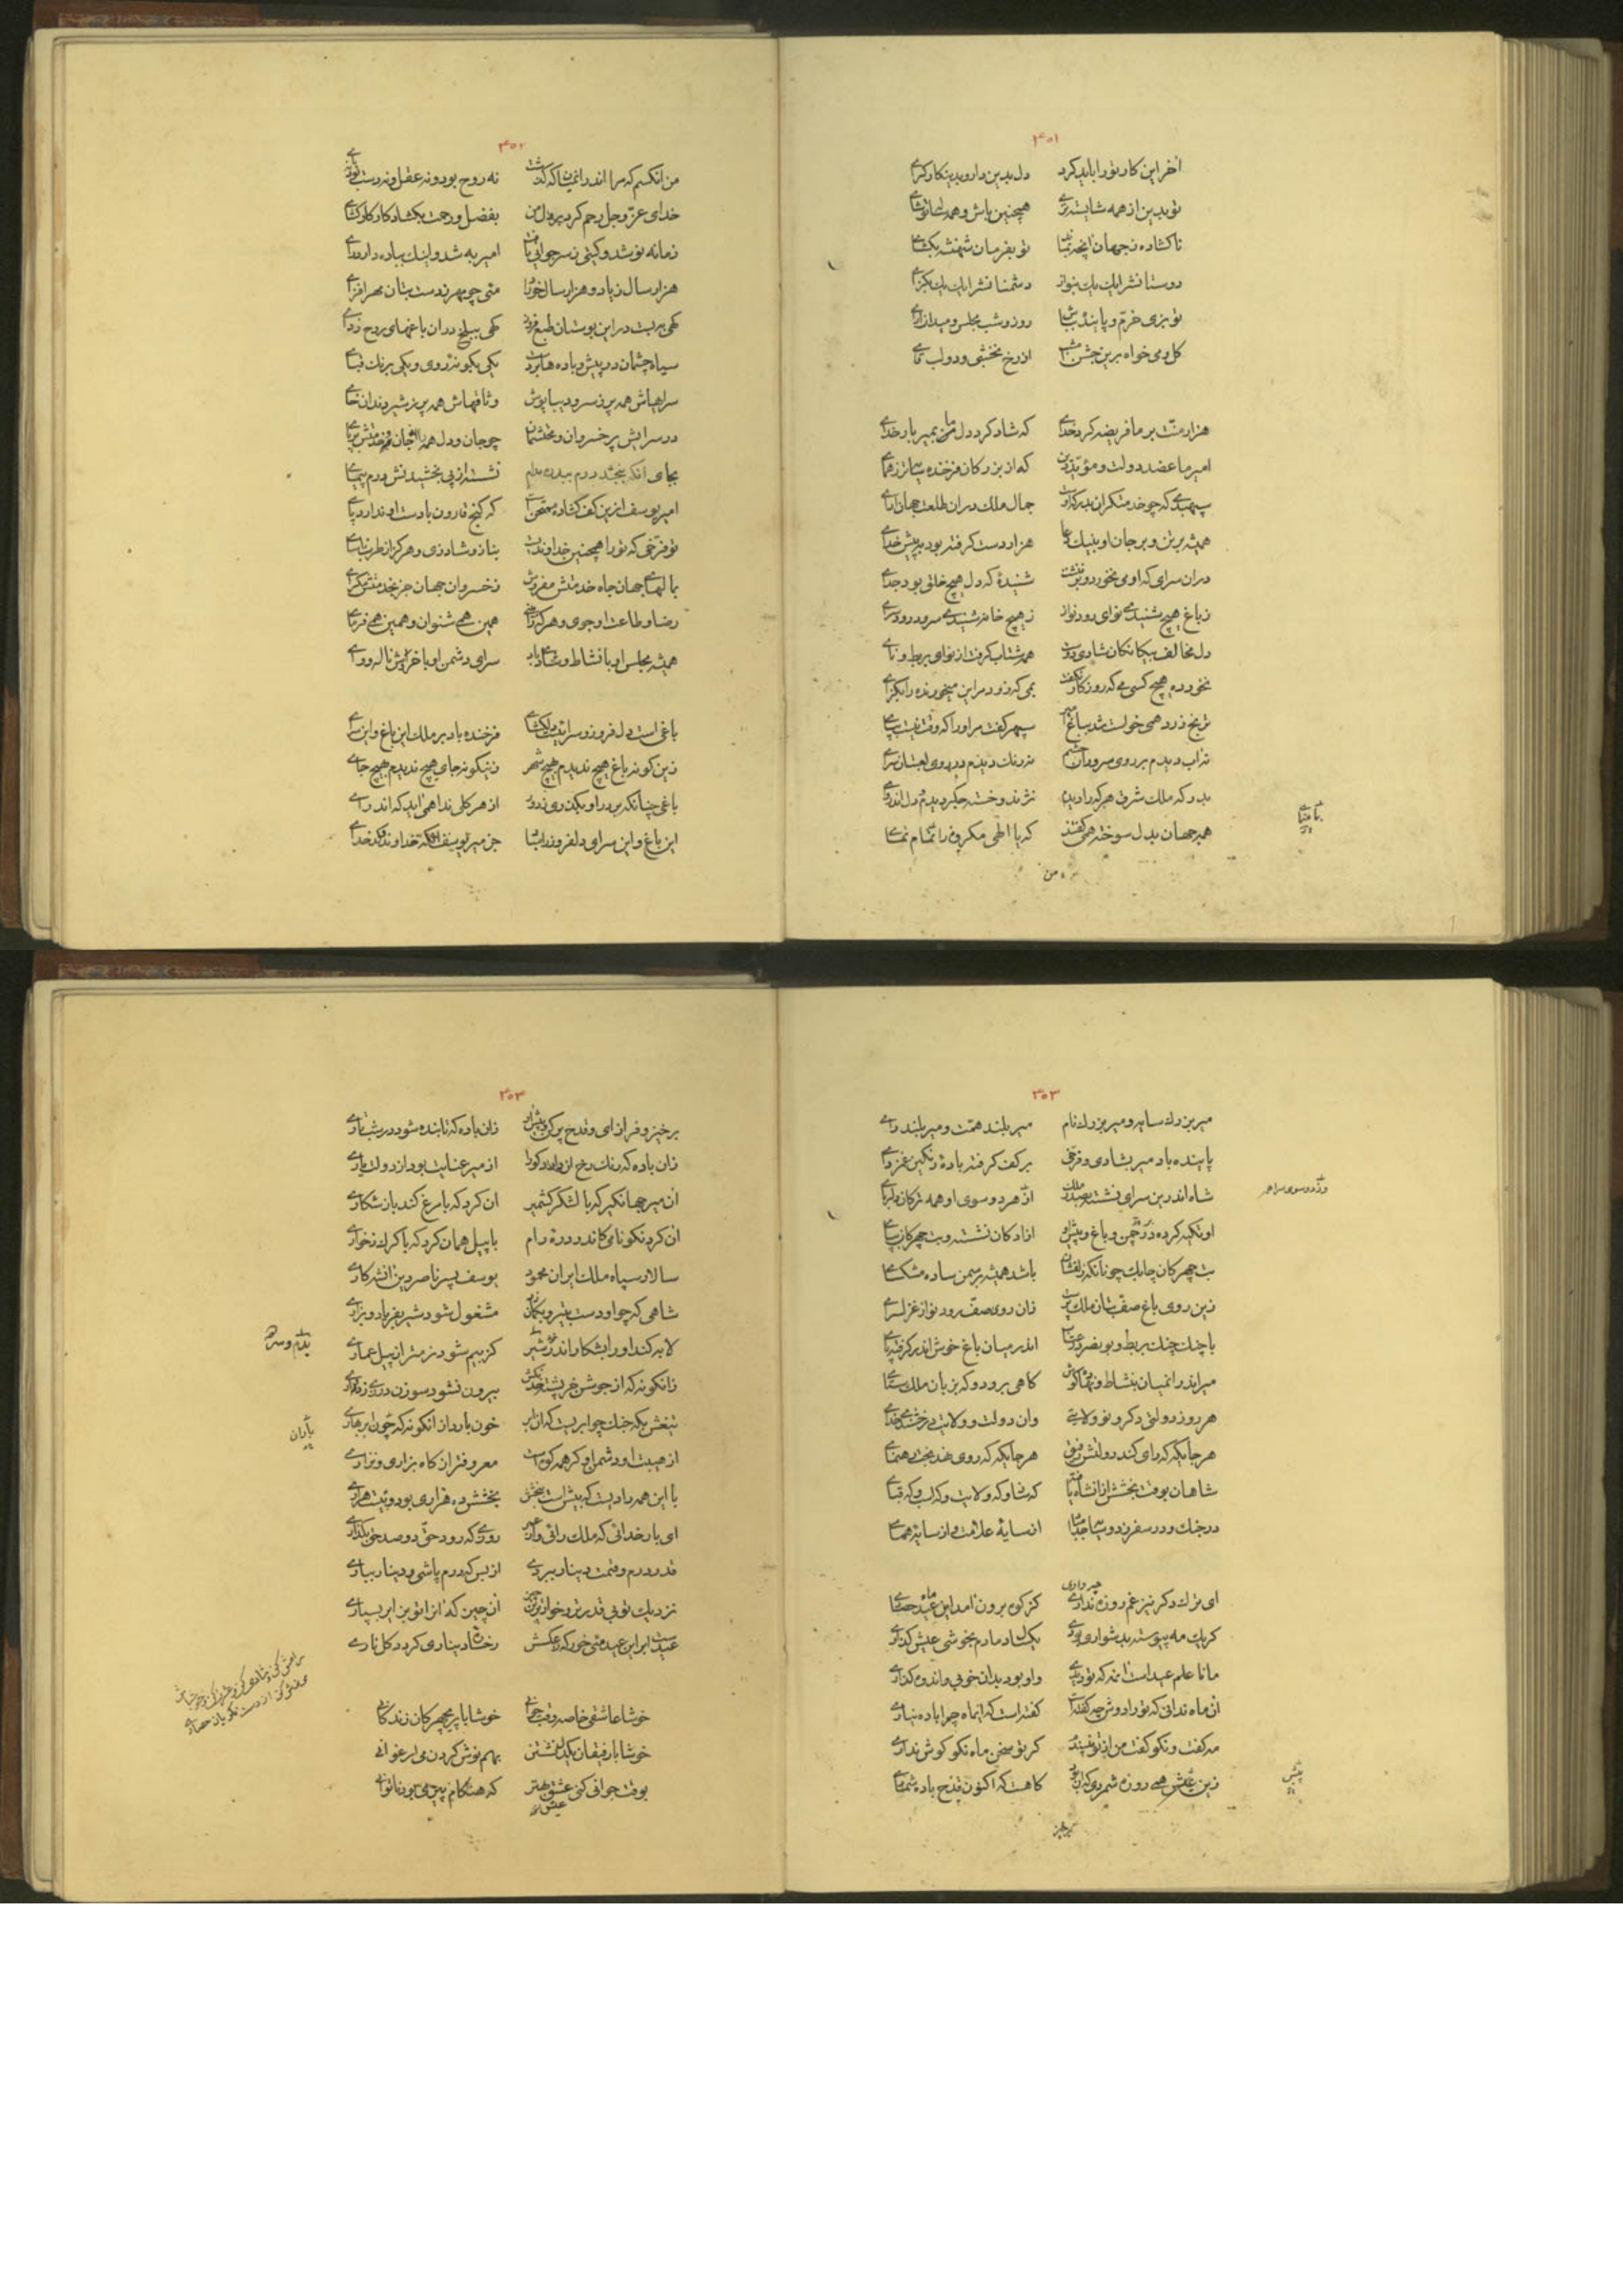 ۴۰۱
آخر این کار تو را باید کرد دل بدین دار و بدینکار گرای
تو بدین از همه شایسته تری همچنین باش و همه
ناکشاده ز جهان آنچه بماند تو بفرمان شهنشه بکشای
دوستانش را یک یک بنواز دشمنانش را یک یک بگزای
تو بزی خرم و پاینده بباش روز و شب مجلس و میدان آرای
کل و می خواه برین جشن از رخ بخشی و دولب
هزار منت بر ما فریضه کرد خدای که شاد کرد دل ما بمیر بار خدای
امیر ما عضد دولت و مؤید دین که از بزرکان فرخنده
سپهبدی که چو خدمتکران بدرکه اوست جمال ملک در ان طلعت جهان آرای
همیشه بر تن و بر جان او بنیک دعا هزار دست گرفته بود به پیش خدای
در ان سرای که او می نخورد و ننشست شنیدهٔ که دل هیچ خالی بود بجای
ز باغ هیچ شنیدی نوای رود نواز ز هیچ خانه شنیدی سرود رود سرای
دل مخالف بیکانکان شادی دوست همه شتاب گرفت از نوای بربط و نای
نخورده هیچ کسی می که روزکار نگفت بمی که زود مر این میخورنده را بگزای
ترنج زرد همی خواست شد بباغ سپهر گفت مر او را که وقت نیست بپای
نه آب دیدم بر روی سرو نه رنک دیدم در روی لعبتان سرای
بدو که ملک شرق هر که را دیدم نژند و خسته جکر دیدم و دل اندروای
همه جهان بدل سوخته همی گفتند که یا الهی مکروه را تو منمای
من
۴۰۲
من آنکسم که مرا اندر آنمیان که گذشت نه روح بود و نه عقل و نه دست بود و نه پای
خدای عز و جل رحم کرد بر دل من بفضل و رحمت بکشاد کار کار کشای
زمانه نو شد و کیتی ز سر جوانی یافت امیر به شد و اینک بباده دارد رای
هزار سال زیاد و هزار سال خورد می چو مهر ز دست بتان مهر افزای
کهی ببست در این بوستان طبع فروز کهی ببلخ در ان باغهای روح زدای
سیاه چشمان در پیش و باده ها بر دست یکی بکونهٔ روی و یکی برنک قبای
سراهاش همه پر ز سرو دیبا پوش وثاقهاش همه پر ز شیر دندان خای
در سرایش پر خسروان و محتشمان چو جان و دل همه را خدمتش
بجای آنکه ببخشد درم بیدره مدام نشسته از پی بخشیدنش درم پیمای
امیر یوسف از این کف کشاده که گنج قارون با دست او ندارد پای
تو فرخی که تو را همچنین خداوندیست بناز و شاد زی و هر کز از طرب ناسای
بسالها جهان جاه خدمتش مفروش ز خسروان جهان جز بخدمتش مگرای
رضا و طاعت او جوی و هر کجا همین همی شنوان و همین همی فرمای
همیشه مجلس او با نشاط و شادی باد سرای دشمن او با خروش و ناله و وای
باغی است دل فروز و سرائیست دلکشای فرخنده باد بر ملک این باغ و این سرای
زین کونه باغ هیچ ندیدم بهیچ شهر زینکونه جای هیچ ندیدم بهیچ جای
باغی چنانکه بر در او بگذری ز دور از هر کلی ندا همی آید که اندرآی
این باغ و این سرای دلفروز را جز میر یوسف خداوند و کدخدای
۴۰۳
میر بزرک سایه و میر بزرک نام میر بلند همت و میر بلند رای
پاینده باد میر بشادی و فرخی بر کف کرفته بادهٔ رنگین غمزدای
شاه اندرین سرای نشسته بصدر ملک از هر دو سوی او همه ترکان دلربای
و ز دو سوی سرا همه
او تکیه کرده در چمن و باغ و پیش او آزادکان نشسته و بت چهرکان بپای
بت چهرکان چابک چونانکه زلفشان باشد همیشه بر سمن ساده مشکسای
زین روی باغ صف بتان ملک پرست زان روی صف رود نواز غزلسرای
با چنک چنک و بربط و بونصر اندر میان باغ خوش اندر گرفته پای
میر اندر آنمیان بنشاط و نهاده گوش گاهی برود و گه بزبان ملک ستای
هر روز دولتی دکر و نو ولایتی وان دولت و ولایت
هر جایکه که رای کند دولتش رفیق هر جایکه که روی نهد بخت رهنمای
شاهان بوقت بخشش از آنشاه یافته گه ساو و گه ولایت و گه اسب و گه قبای
در جنک و در سفر ز دو سایه جدا مباد از سایهٔ علامت و از سایهٔ همای
ای ترک دکر نیز غم روزه نداری کز کوه برون آمد این عید حصاری
چه داری
گر یک مه پیوسته بدشواری بودی یکسال دمادم بخوشی عیش گذاری
مانا علم عید است آن مه که تو دیدی و او بود بدان خوبی و اندوه کساری
آن ماه ندانی که تو را دوش چه گفته است گفته است که ایماه چرا باده نیاری
مه گفت و نکو گفت من از تو نپسندم گر تو سخن ماه نکو گوش نداری
زین پیش همی روزه شمردی کاهست که اکنون قدح باده شماری
پیش
برخیز
۴۰۴
برخیز و فراز آی و قدح پر کن و پیش آر زان باده که تابنده شود در شب تاری
زان باده که رنک رخ از میر عنایت بود از دولت یاری
آن میر جهانگیر که با لشکر کشمیر آن کرد که با مرغ کند باز شکاری
آن کرد نکونامی کاندر درهٔ رام با پیل همان کرد که با کرک ز خواری
سالار سپاه ملک ایران محمود یوسف پسر ناصر دین آنشه کاری
شاهی که چو او دست بتیر و بکمان زد مشغول شود شیر بفریاد و بزاری
لابه کند او را بشکار اندر شیر کز بیم شود نرمتر از پیل عماری
زانگونه که از جوشن خرپشته خدنگش بیرون نشود سوزن درزی ز دواری
تیغش بکه جنک چو ابریست که آن ابر خون بارد از آنگونه که چون ابر بهاری
باران
از هیبت او دشمن او گر همه کوه است معروفتر از کاه بزاری و نزاری
با این همه رادیست که پیش است بخشش بخشش ده هزاری بود و بیست هزاری
ای بار خدائی که ملک رانی و روزی که رود حق دو صد حق بگذاری
قدر درم و قیمت دینار ببردی از بس که درم پاشی و دینار بباری
نزدیک تو بی قدرتر و خوارترین چیز آن چیز که آنرا تو بزائر بسپاری
عیدست بر این عید می خور که رخشاد و دیناری کردد گل ناری
خوشا عاشقی خاصه وقت جوانی خوشا با پریچهرکان زندگانی
خوشا با رفیقان یکدل نشستن بهم نوش کردن می ارغوانی
بوقت جوانی کنی عشق بهتر که هنگام پیری بود ناتوانی
عیش